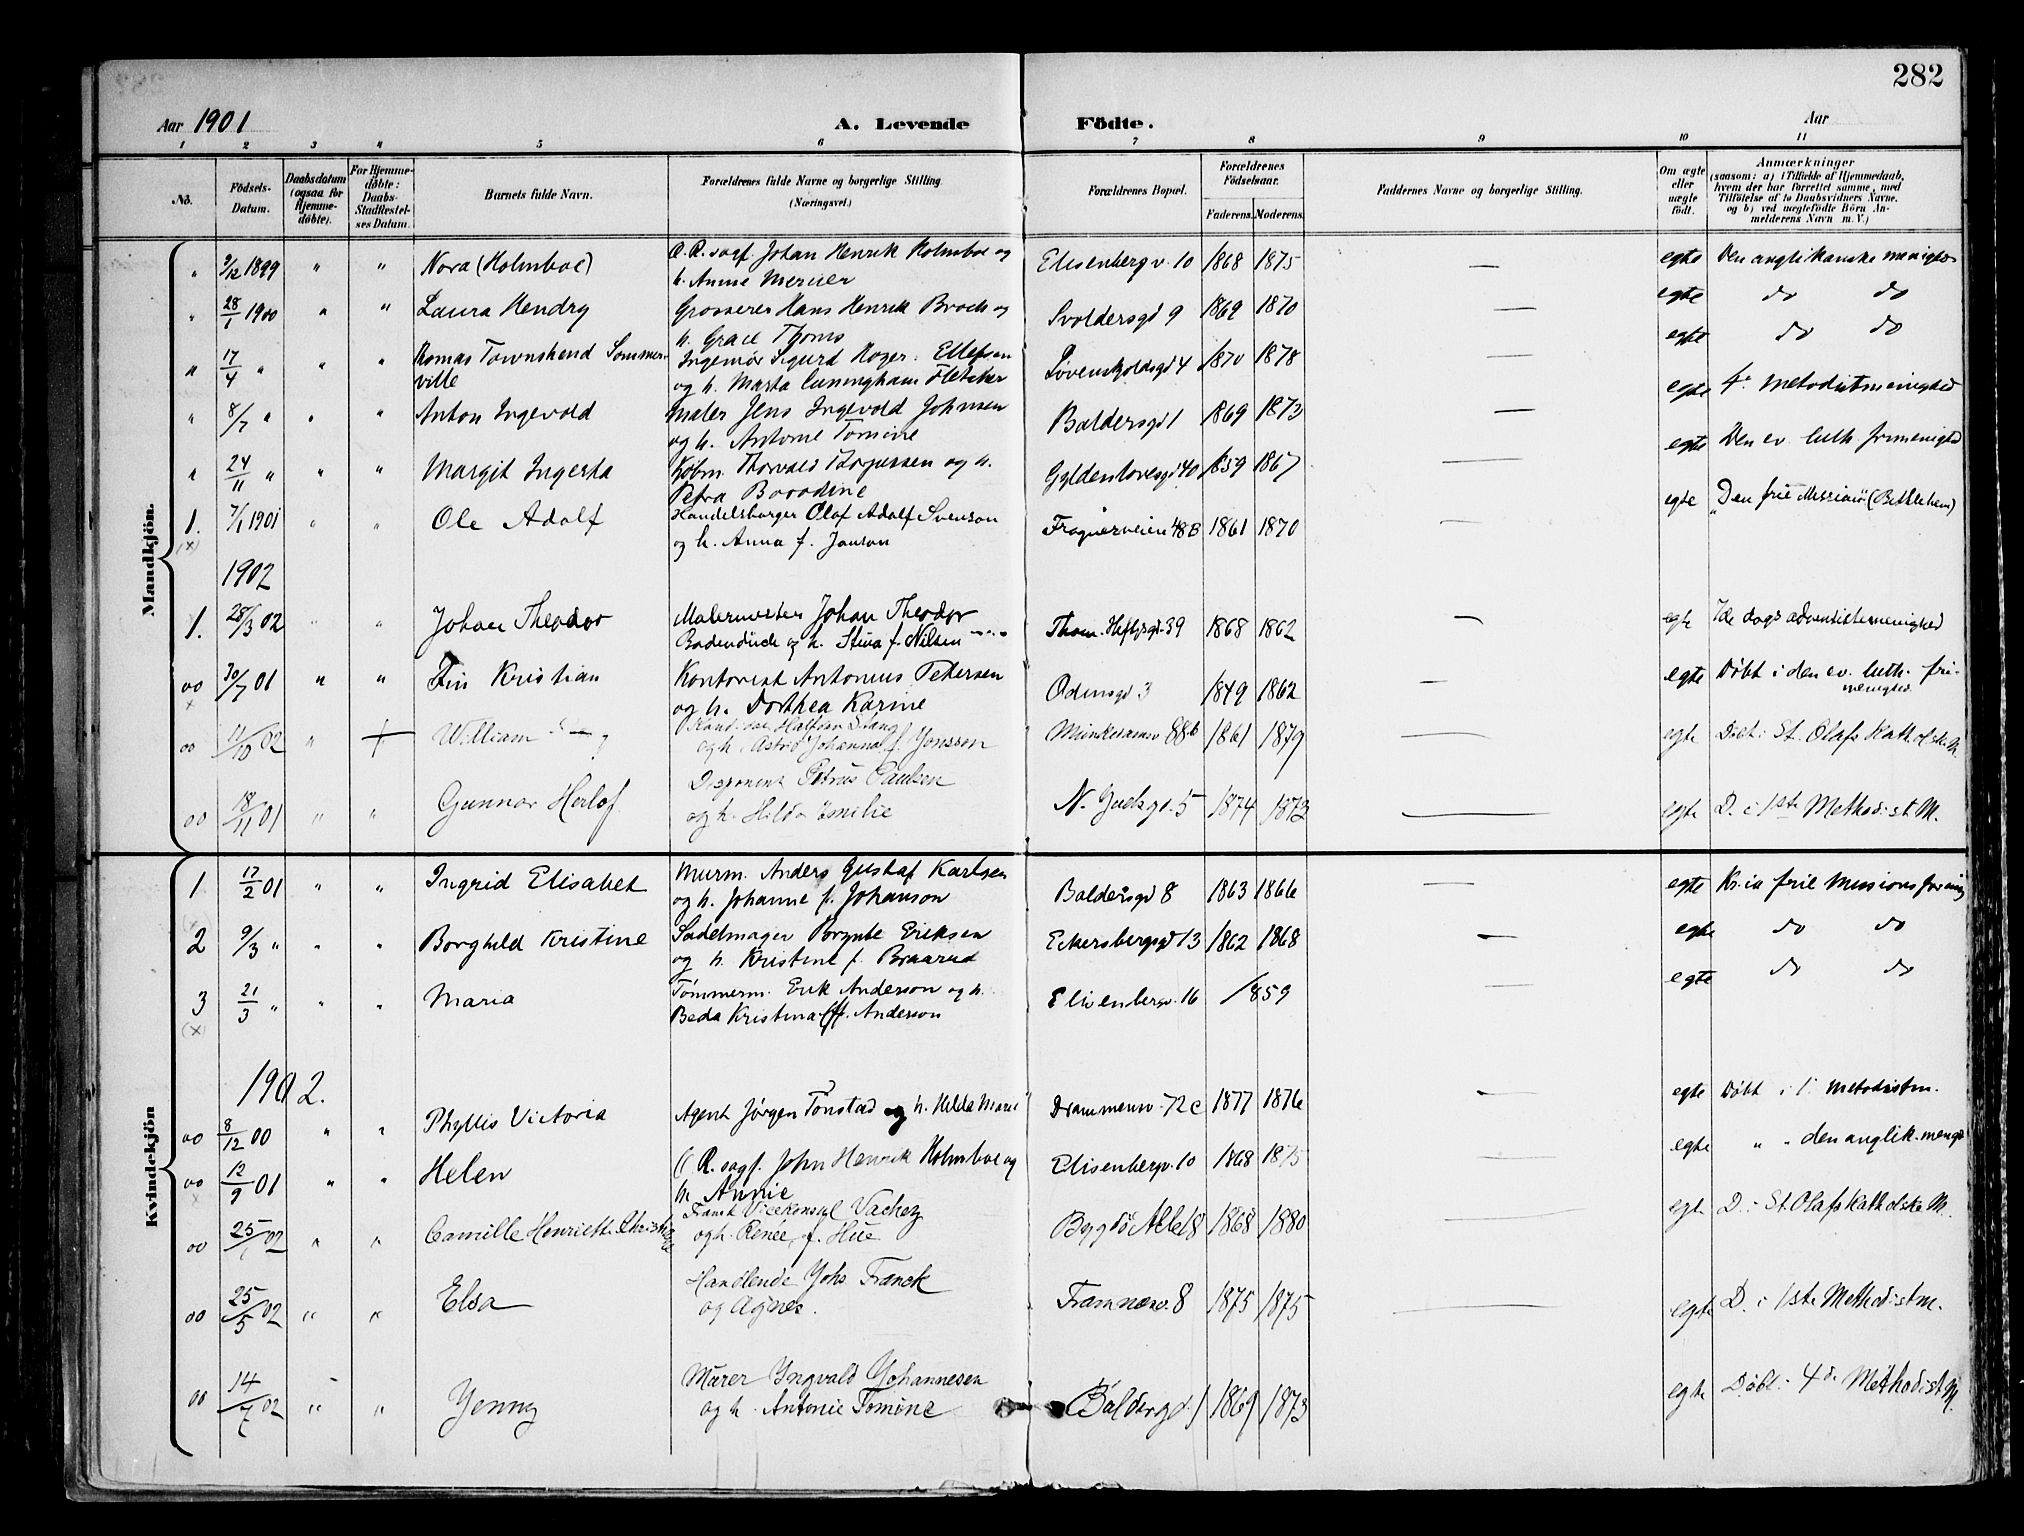 282
Aar 1901 A. Levende Födte. Aar
1 2 3 4 5 6 7 8 9 10 11
No. Födsels-Datum. Daabsdatum (ogsaa for Hjemme-døbte). For Hjemme-døbte: Daabs-Stadfæstel-ses Datum. Barnets fulde Navn. Forældrenes fulde Navne og borgerlige Stilling. (Næringsvei.) Forældrenes Bopæl. Forældrenes Födselsaar. Faderens. Moderens. Faddernes Navne og borgerlige Stilling. Om ægte eller uægte födt. Anmærkninger (saasom: a) i Tilfælde af Hjemmedaab, hvem der har forrettet samme, med Tilföielse af to Daabsvidners Navne, og b) ved uægtefödte Börn An-melderens Navn m. V.)
Mandkjön.
" 9/12 1899 " " Nora (Holmboe) O. R. sagf. Johan Henrik Holmboe og
h. Annie Mercier Elisenbergv. 10 1868 1875 — egte Den anglikanske menighed
" 28/1 1900 " " Laura Hendry Grosserer Hans Henrik Broch og
h. Grace Thoms Svoldersgd 9 1869 1870 — egte do do
" 17/4 " " " Thomas Townshend Sommer-
ville Ingeniør Sigurd Roger Ellefsen
og h. Marta Cuningham Fletcher Løvenskjoldsgd 4 1870 1878 — egte do do
" 8/7 " " " Anton Ingevold Maler Jens Ingevold Johnsen
og h. Antonie Tomine Baldersgd 1 1869 1873 — egte 4. Metodistmenighed
" 24/11 " " " Margit Ingerta Kjøbm. Thorvald Torgussen og h.
Petra Boradine Gyldenløvesgd 40 1859 1867 — egte Den ev. luth. frimenighed
1. 7/1 1901 " " Ole Adolf Handelsborger Olaf Adolf Svenson
(x) og h. Anna f. Janson Frognerveien 48B 1861 1870 — egte Den frie Mission (Bethlehem)
1902
1. 28/3 02 " " Johan Theodor Malermester Johan Theodor
Bodendick og h. Stina f. Nilsen Thom. Heftyesgd. 39 1868 1862 — egte 7de dags adventistmenighed
oo 30/7 01 " " Fin Kristian Kontorist Antonius Petersen
x og h. Dorthea Karine Odinsgd 3 1849 1862 — egte Døbt i den ev. luth. fri-
menighed.
oo 11/10 02 " + William Kand. Halfdan Stang
og h. Astrid Johanna f. Jonsson Munkedamsv 88b 1861 1879 — egte Døbt i St. Olafs Katholske M.
oo 18/11 01 " " Gunnar Herlof Disponent Petrus Paulsen
og h. Hilda Emilie N. Juelsgd. 5 1874 1873 — egte D. i 1ste Methodist M.
Kvindekjön
1 17/2 01 " " Ingrid Elisabet Murm. Anders Gustaf Karlsen
(x) og h. Johanne f. Johanson Baldersgd 8 1863 1866 — egte Kr.ia frie Missionsforening
2 9/3 " " " Borghild Kristine Sadelmager Brynte Eriksen
og h. Kristine f. Braarud Eckersbergsgd 13 1862 1868 — egte do do
3 21/3 " " " Maria Tømmerm. Erik Anderson og h.
(x) Beda Kristina f. Anderson Elisenbergv. 16 1859 — egte do do
1902.
oo 8/12 00 " " Phyllis Victoria Agent Jørgen Tonstad og h. Hilda Marie Drammensv. 72c 1877 1876 — egte Døbt i 1. Metodistm.
oo 12/9 01 " " Helen O. R. sagf. John Henrik Holmboe og
x h. Annie Elisenbergv. 10 1868 1875 egte " " den anglik. menigh
oo 25/1 02 " " Camille Henriette Christine Fransk Vicekonsul Vachez
og h. Renée f. Hue Bygdø Allé 18 1868 1880 — egte D. i St Olafs Katholske M.
oo 25/5 02 " " Elsa Handlende Johs Franck
og Agnes. Framnesv. 8 1875 1875 — egte D. i 1ste Methodistm.
oo 14/7 02 " " Jenny Murer Ingvald Johannesen
og h. Antonie Tomine Baldersgd 1 1869 1873 egte Døbt i 4de Methodist M.